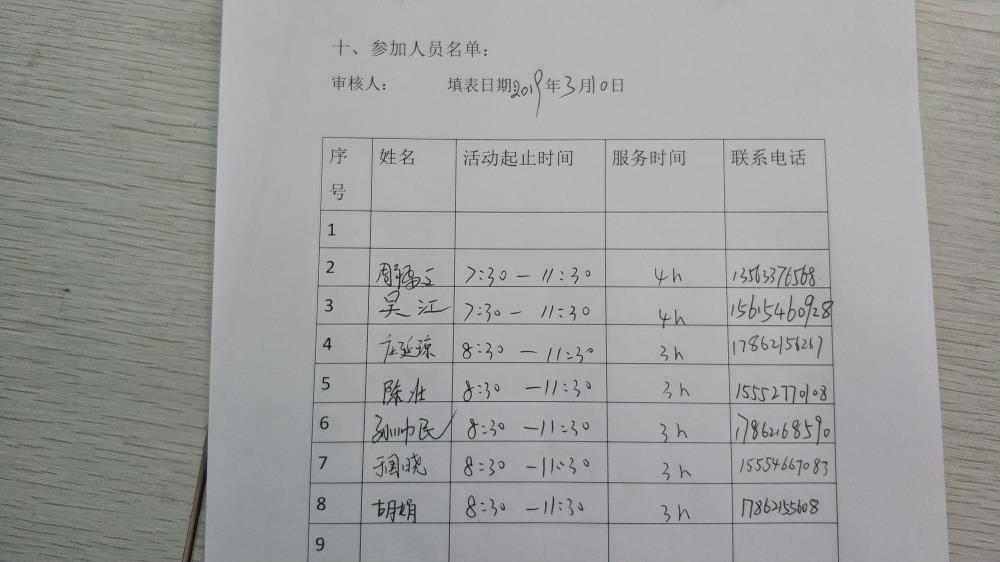 十、参加人员名单：
审核人： 填表日期2019年3月10日
序号 姓名 活动起止时间 服务时间 联系电话
1
2 7:30 — 11:30 4h 13563376568
3 吴江 7:30 — 11:30 4h 15615460928
4 庄延琼 8:30 — 11:30 3h 17862156267
5 陈壮 8:30 — 11:30 3h 15552770108
6 孙帅民 8:30 — 11:30 3h 17862168590
7 8:30 — 11:30 3h 15554667083
8 胡娟 8:30 — 11:30 3h 17862155608
9